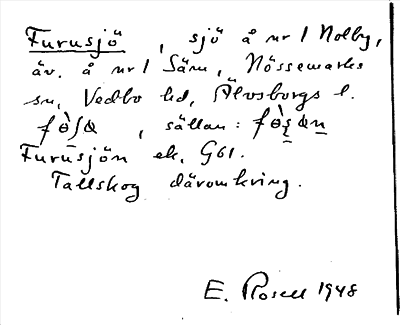 Furusjö, sjö å nr 1 Nolby,
äv. å nr 1 Säm, Nössemarks
sn, Vedbo hd, Älvsborgs l.
sällan:
Furusjön ek. G61.
Tallskog däromkring.
E. Rosell 1948